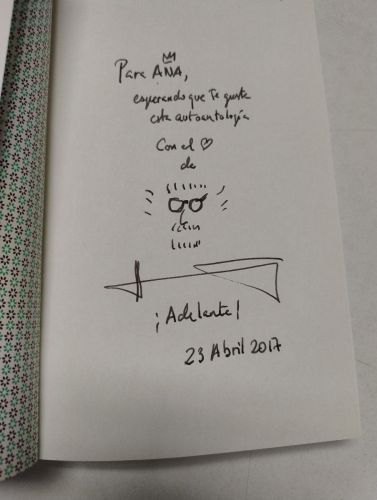 Para ANA,
esperando que te guste
esta autoantología
Con el ♡
de
¡Adelante!
23 Abril 2017